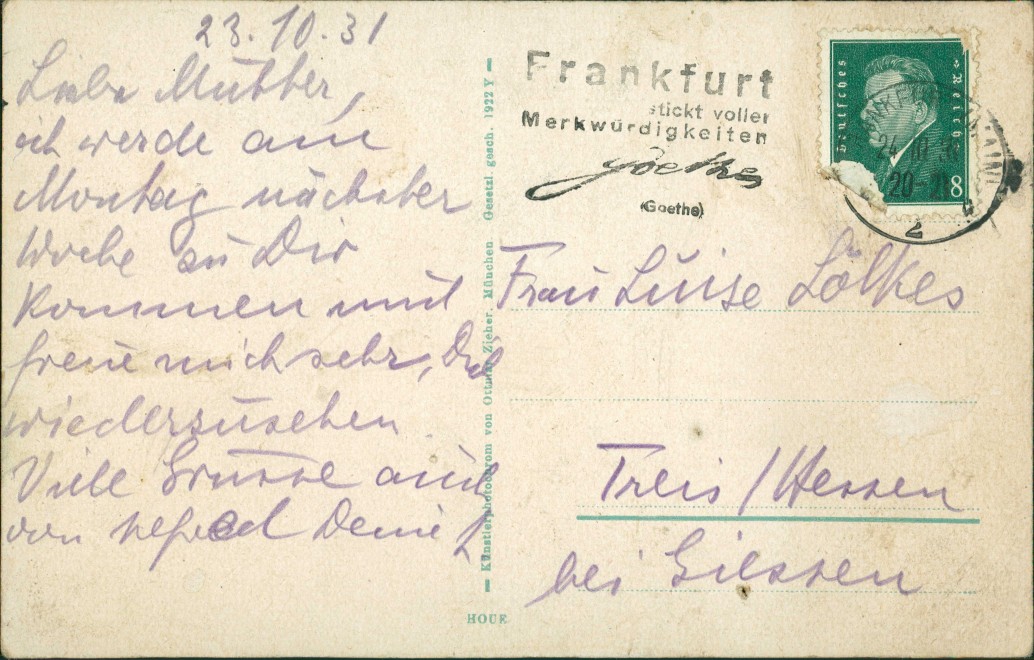 23.10.31
Liebe Mutter,
ich werde am
Montag nächster
Woche zu Dir
kommen und
freue mich sehr, Dich
wiederzusehen.
Viele Grüsse auch
von Deine
— Künstlerphotochrom von Ottmar Zieher, München. Gesetzl. gesch. 1922 Y —
HOUR
Frankfurt
steckt voller
Merkwürdigkeiten
Goethe
(Goethe)
Deutsches Reich
8
24.10.31
20-21
2
Frau Luise Lölkes
Treis/Hessen
bei Giessen